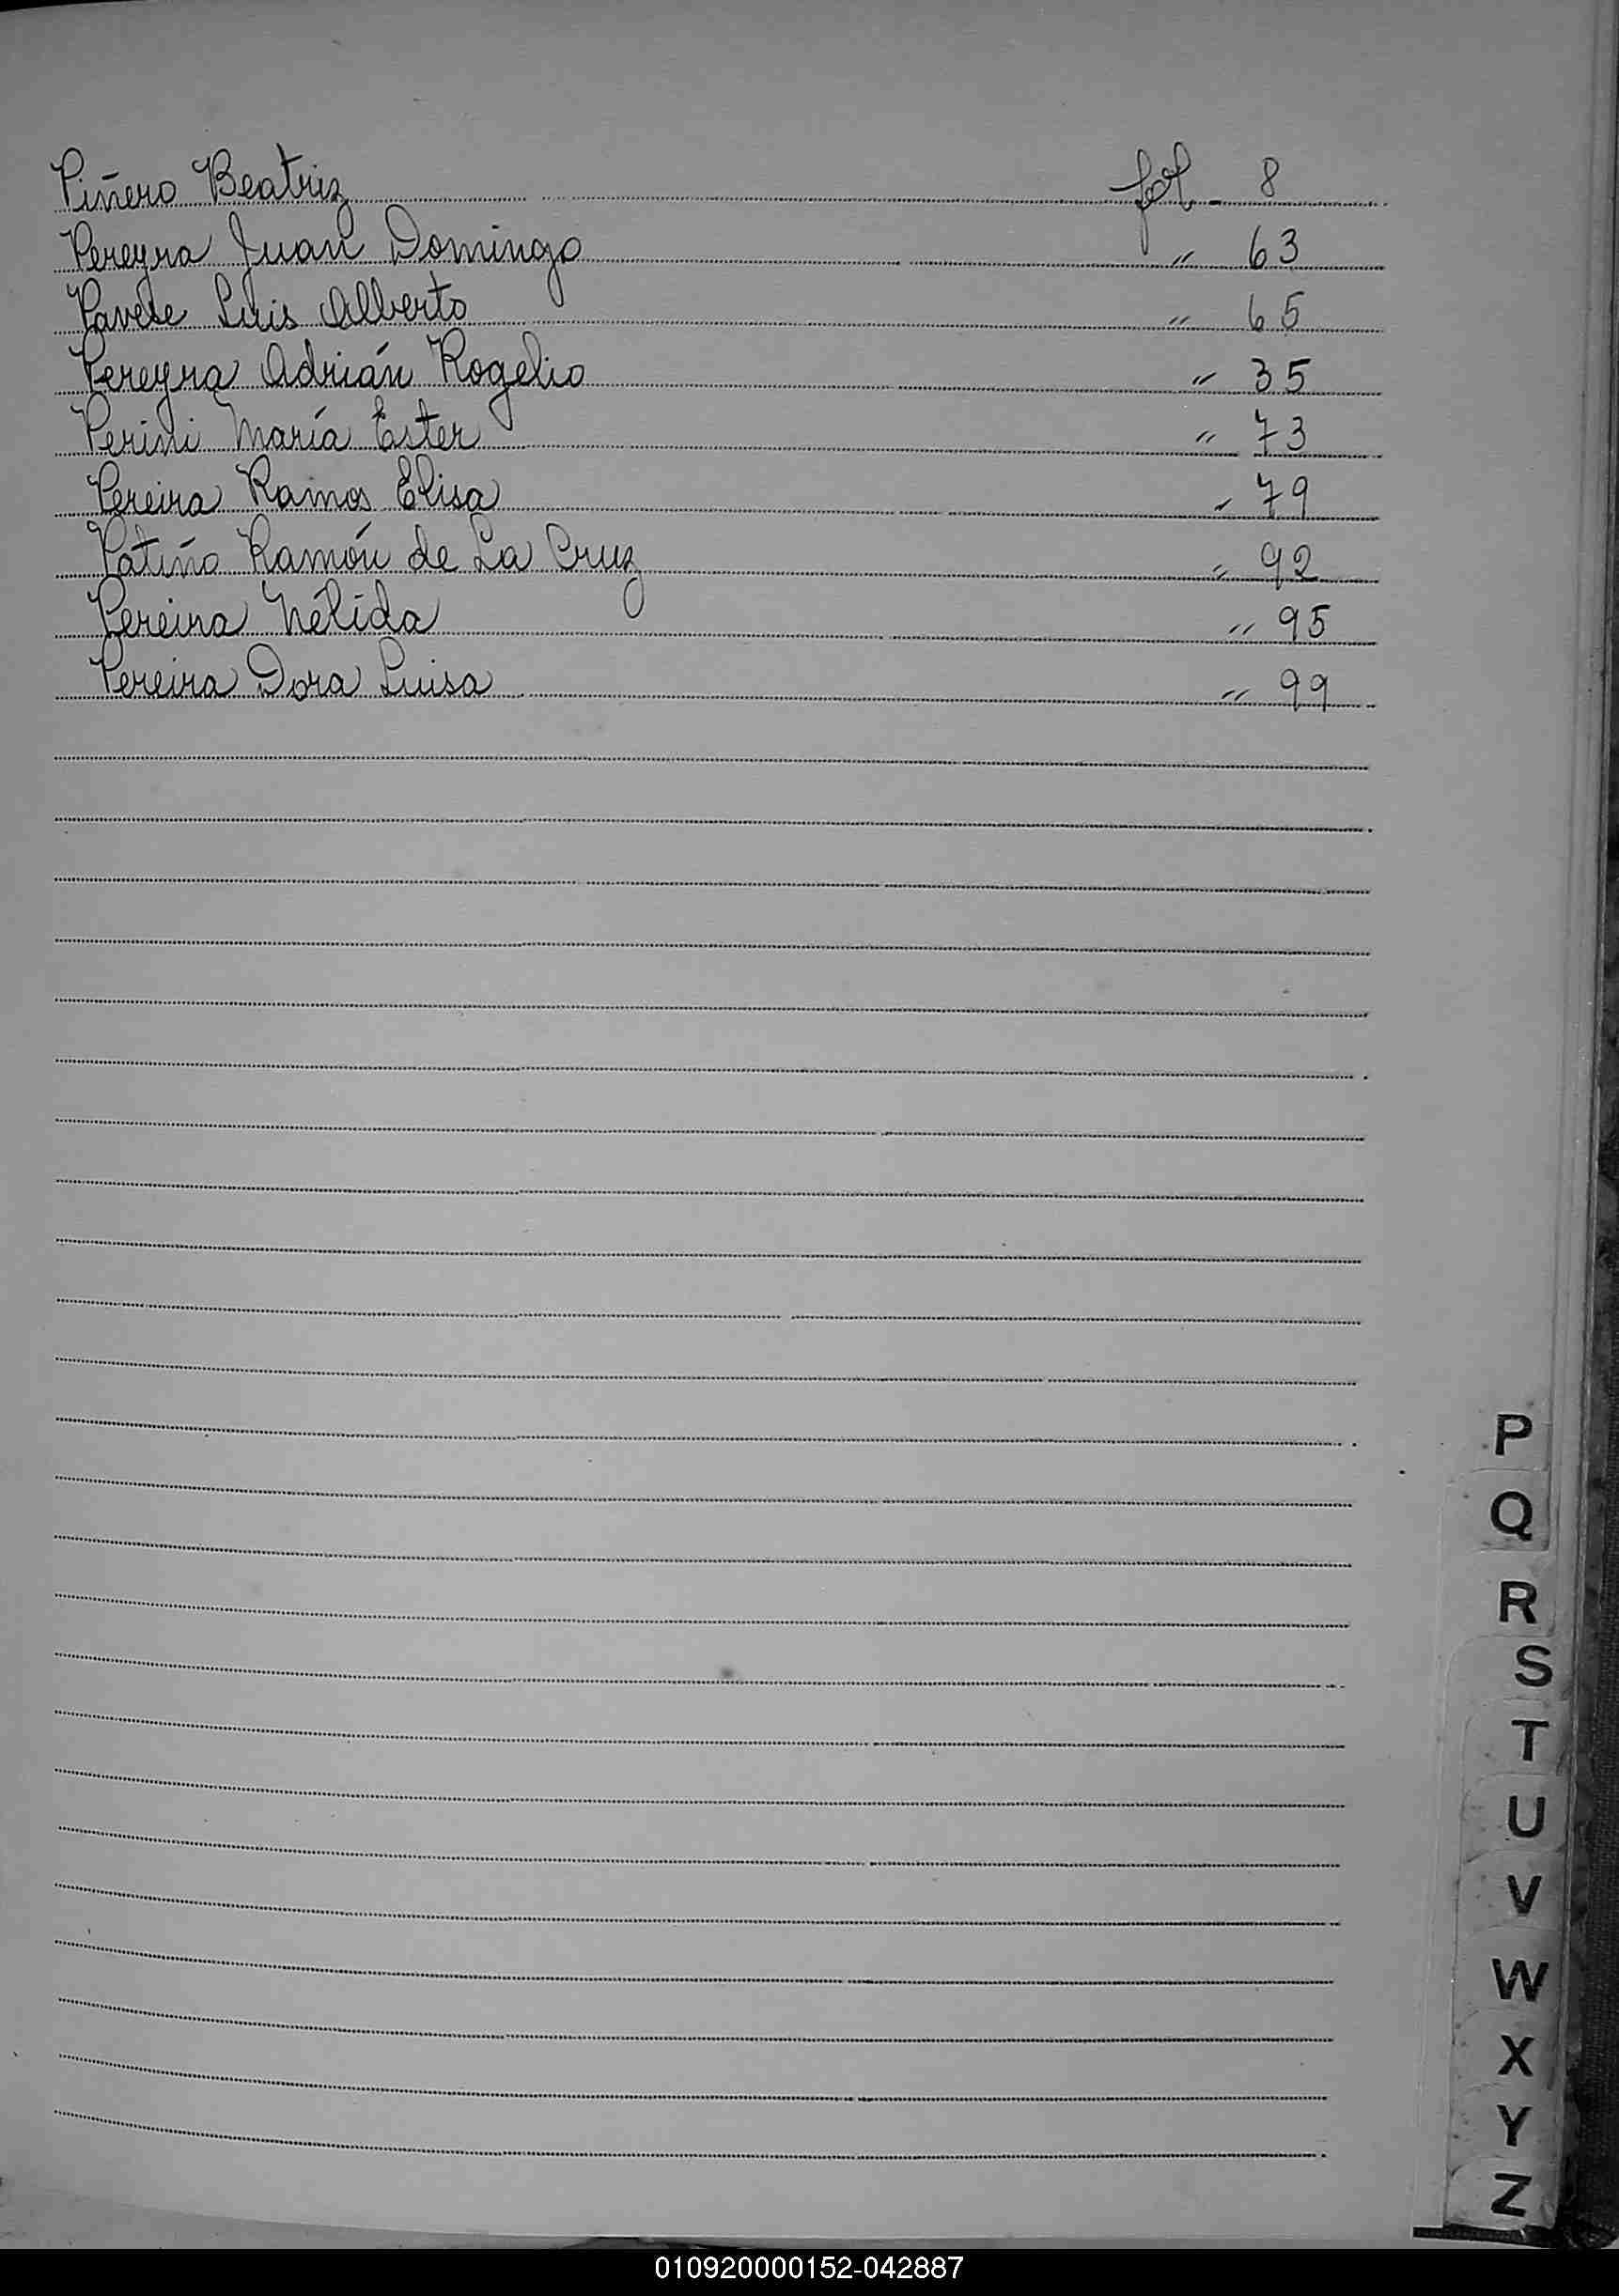 Piñero Beatriz fol - 8
Pereyra Juan Domingo " 63
Pavese Luis Alberto " 65
Pereyra Adrián Rogelio " 35
Perini María Ester " 73
Pereira Ramos Elisa " 79
Patiño Ramón de La Cruz " 92
Pereira Nélida " 95
Pereira Dora Luisa " 99
P
Q
R
S
T
U
V
W
X
Y
Z
010920000152-042887